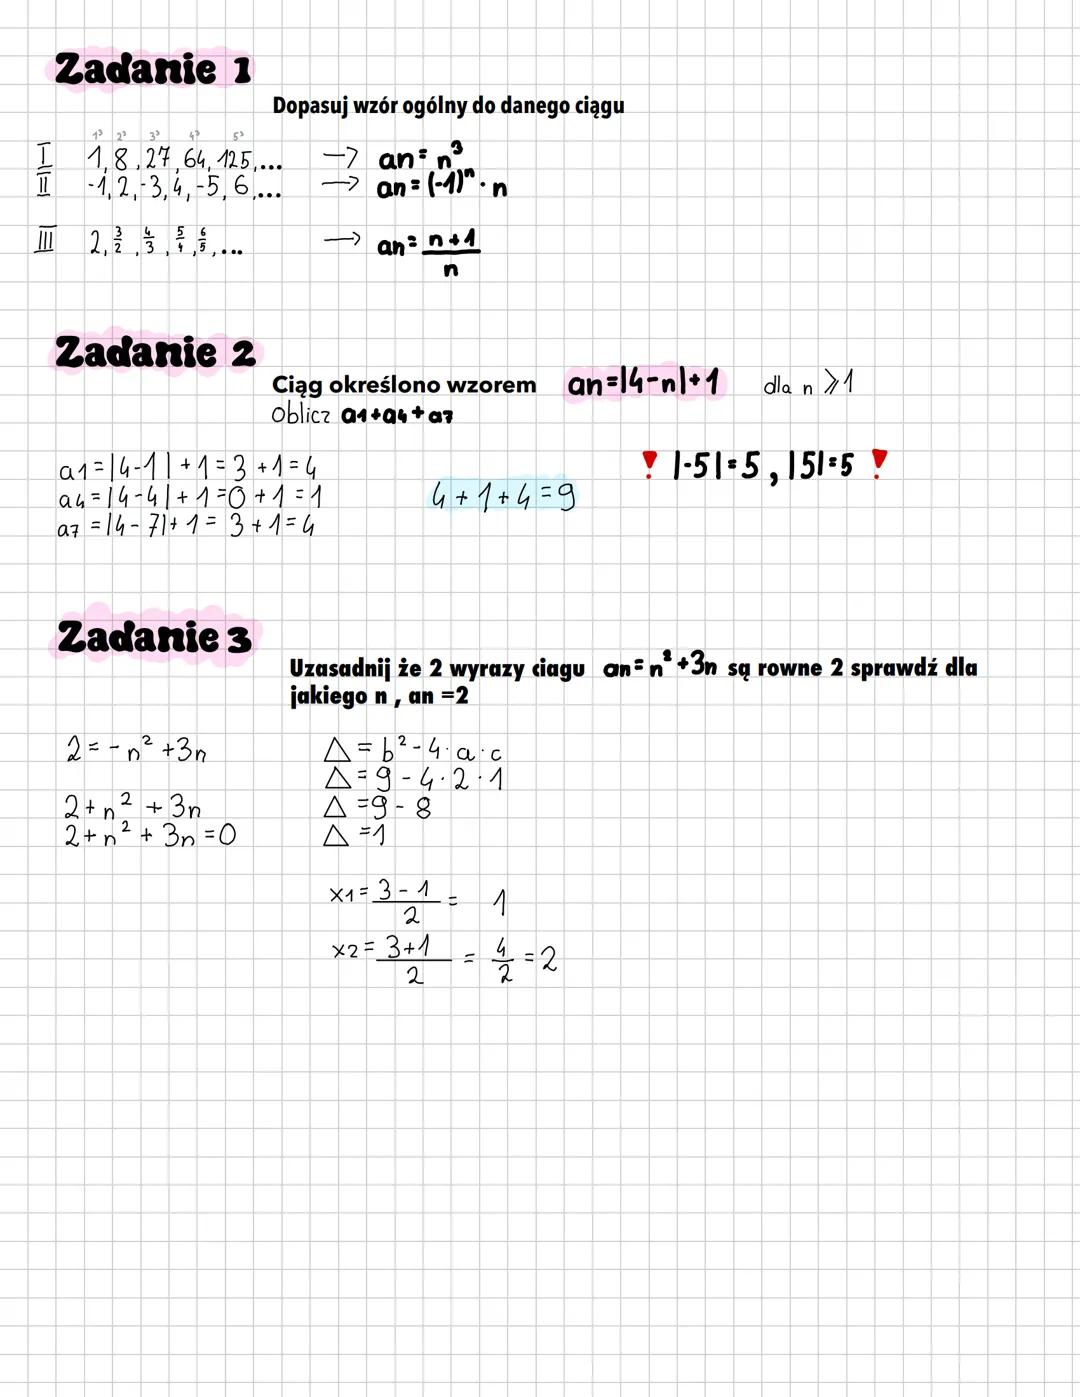 Zadanie 1
Dopasuj wzór ogólny do danego ciągu
1³ 2³ 3³ 4³ 5³
I 1, 8, 27, 64, 125,... → an = n³
II -1, 2, -3, 4, -5, 6,... → an = (-1)ⁿ · n
III 2, 3/2, 4/3, 5/4, 6/5,... → an = n+1/n
Zadanie 2
Ciąg określono wzorem an=|4-n|+1 dla n ⩾ 1
Oblicz a1+a4+a7
a1 = |4-1| + 1 = 3 + 1 = 4
! |-5|=5, |5|=5 !
a4 = |4-4| + 1 = 0 + 1 = 1
4 + 1 + 4 = 9
a7 = |4-7| + 1 = 3 + 1 = 4
Zadanie 3
Uzasadnij że 2 wyrazy ciagu an = n² +3n są rowne 2 sprawdź dla
jakiego n , an =2
2 = - n² + 3n
2 + n² + 3n
2 + n² + 3n = 0
△ = b² - 4 · a · c
△ = 9 - 4 · 2 · 1
△ = 9 - 8
△ = 1
x1 = 3 - 1/2 = 1
x2 = 3+1/2 = 4/2 = 2